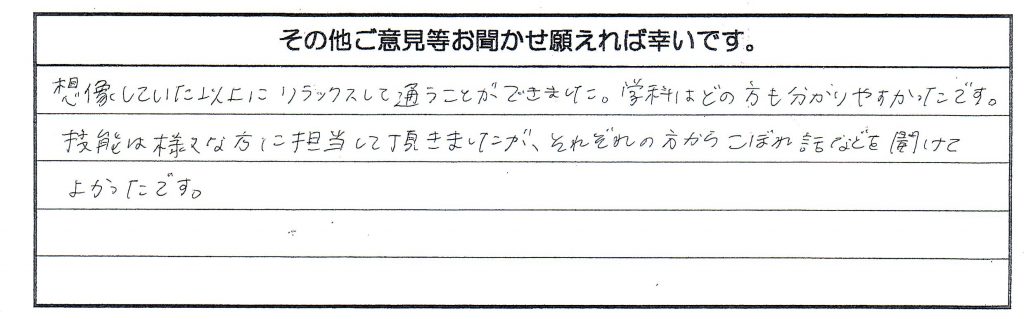 その他ご意見等お聞かせ願えれば幸いです。
想像していた以上にリラックスして通うことができました。学科はどの方も分かりやすかったです。
技能は様々な方に担当して頂きましたが、それぞれの方からこぼれ話などを聞けて
よかったです。